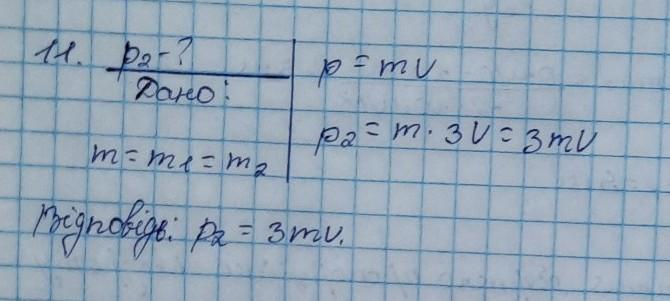 11. p₂ - ?
Дано:
m = m₁ = m₂
p = mv
p₂ = m · 3v = 3mv
Відповідь: p₂ = 3mv.